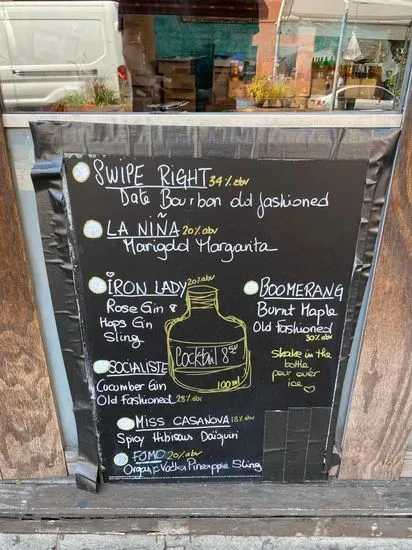 SWIPE RIGHT 34% abv
Date Bourbon old fashioned
LA NIÑA 20% abv
Marigold Margarita
IRON LADY 20% abv
Rose Gin &
Hops Gin
Sling
BOOMERANG
Burnt Maple
Old Fashioned
30% abv
Cocktail 8
100ml
Shake in the
bottle,
pour over
ice
SOCIALISTE
Cucumber Gin
Old Fashioned 28% abv
MISS CASANOVA 18% abv
Spicy Hibiscus Daiquiri
FOMO 20% abv
Organic Vodka Pineapple Sling